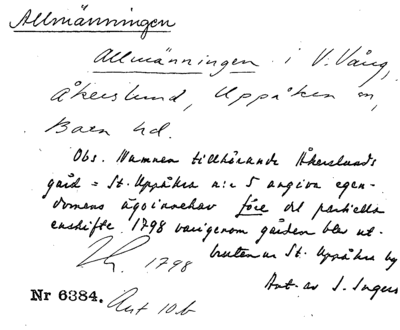 Allmänningen
Allmänningen i V. Vång,
Åkerslund, Uppåkra sn,
Bara hd.
Obs. Namnen tillhörande Åkerslunds
gård = St. Uppåkra n:r 5 angiva egen-
domens ägoinnehav före det partiella
enskifte 1798 varigenom gården blev ut-
bruten ur St. Uppåkra by
1798
Ant. av S. Ingers
Nr 6384. Akt 10b